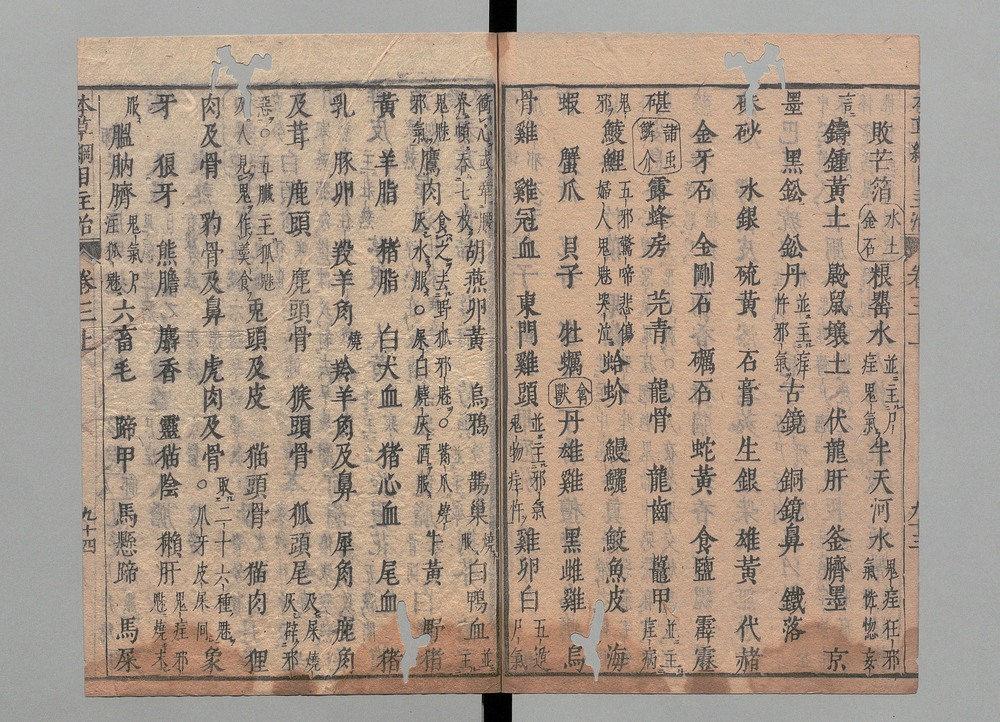 敗芒箔 水土金石 粮罌水 並主尸疰鬼氣 半天河水 鬼疰狂邪氣恍惚妄
言 鑄鍾黃土 鼢鼠壤土 伏龍肝 釜臍墨 京
墨 黑鉛 鉛丹 並主疰忤邪氣 古鏡 銅鏡鼻 鐵落
砂 水銀 硫黃 石膏 生銀 雄黃 代赭
金牙石 金剛石 礪石 蛇黃 食鹽 霹靂
碪 諸虫鱗介 露蜂房 芫青 龍骨 龍齒 鼉甲 並主疰病
鬼邪 鯪鯉 五邪驚啼悲傷婦人鬼魅哭泣 蛤蚧 鰻鱺 鮫魚皮 海
蝦 蟹爪 貝子 牡蠣 禽獸 丹雄雞 黑雌雞 烏
骨雞 雞冠血 東門雞頭 並主邪氣鬼物疰忤 雞卵白 五遁尸氣
衝心 頓吞七枚 胡燕卵黃 烏鴉 鵲巢 燒服 白鴨血 並主
鬼魅邪氣 鷹肉 食之去野狐邪魅○觜爪燒灰水服○屎白燒灰酒服 牛黃 野猪
黃 羊脂 猪脂 白犬血 猪心血 尾血 猪
乳 豚卵 羖羊角 燒 羚羊角及鼻 犀角 鹿角
及茸 鹿頭 麂頭骨 猴頭骨 狐頭尾 及屎燒灰辟邪
惡○五臟主狐魅及人見鬼作羹食 兎頭及皮 猫頭骨 猫肉 狸
肉及骨 豹骨及鼻 虎肉及骨○ 取二十六種魅○爪牙皮屎同 象
牙 狼牙 熊膽 麝香 靈猫陰○ 獺肝 鬼疰邪魅燒末
服 膃肭臍 鬼氣尸疰狐魅 六畜毛 蹄甲 馬懸蹄 馬屎
本草綱目主治 卷三上 九十四